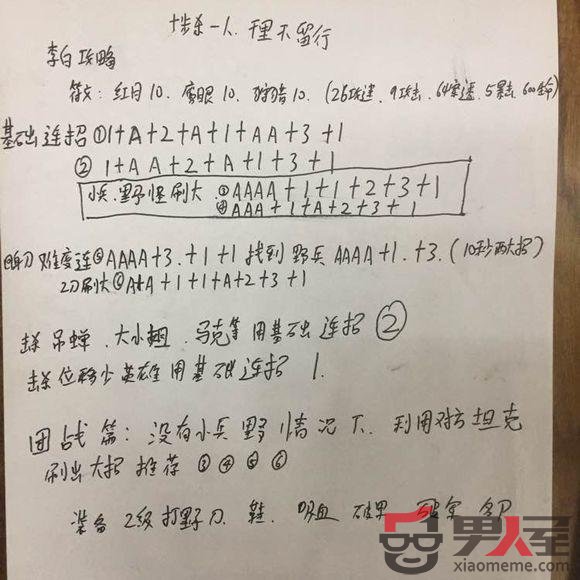 十步杀一人、千里不留行
李白攻略
符文：红月10、鹰眼10、狩猎10、(26攻速、9攻击、64穿透、5暴击、600
基础连招 ①1+A+2+A+1+AA+3+1
②1+AA+2+A+1+3+1
小兵、野怪刷大 ③AAAA+1+1+2+3+1
④AAA+1+A+2+3+1
难度连⑤AAAA+3.+1+1 找到野兵 AAAA+1.+3.(10秒两大招)
2刀刷大⑥A+A+1+1+A+2+3+1
杀吊蝉、大小翘、马克等用基础连招②
杀位移少英雄用基础连招 1.
团战篇：没有小兵野情况下、利用对方坦克
刷出大招 推荐 ③④⑤⑥
装备 2级打野刀 鞋、吸血 破甲
男人屋
xiaomeme.com